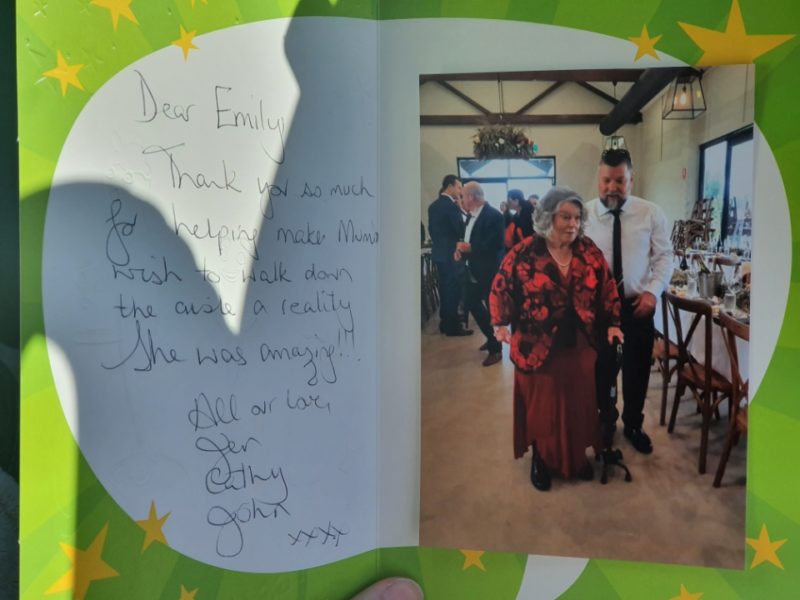 Dear Emily
Thank you so much
for helping make Mum's
wish to walk down
the aisle a reality
She was amazing!!!
All our love,
Jen
Cathy
John
xxxx